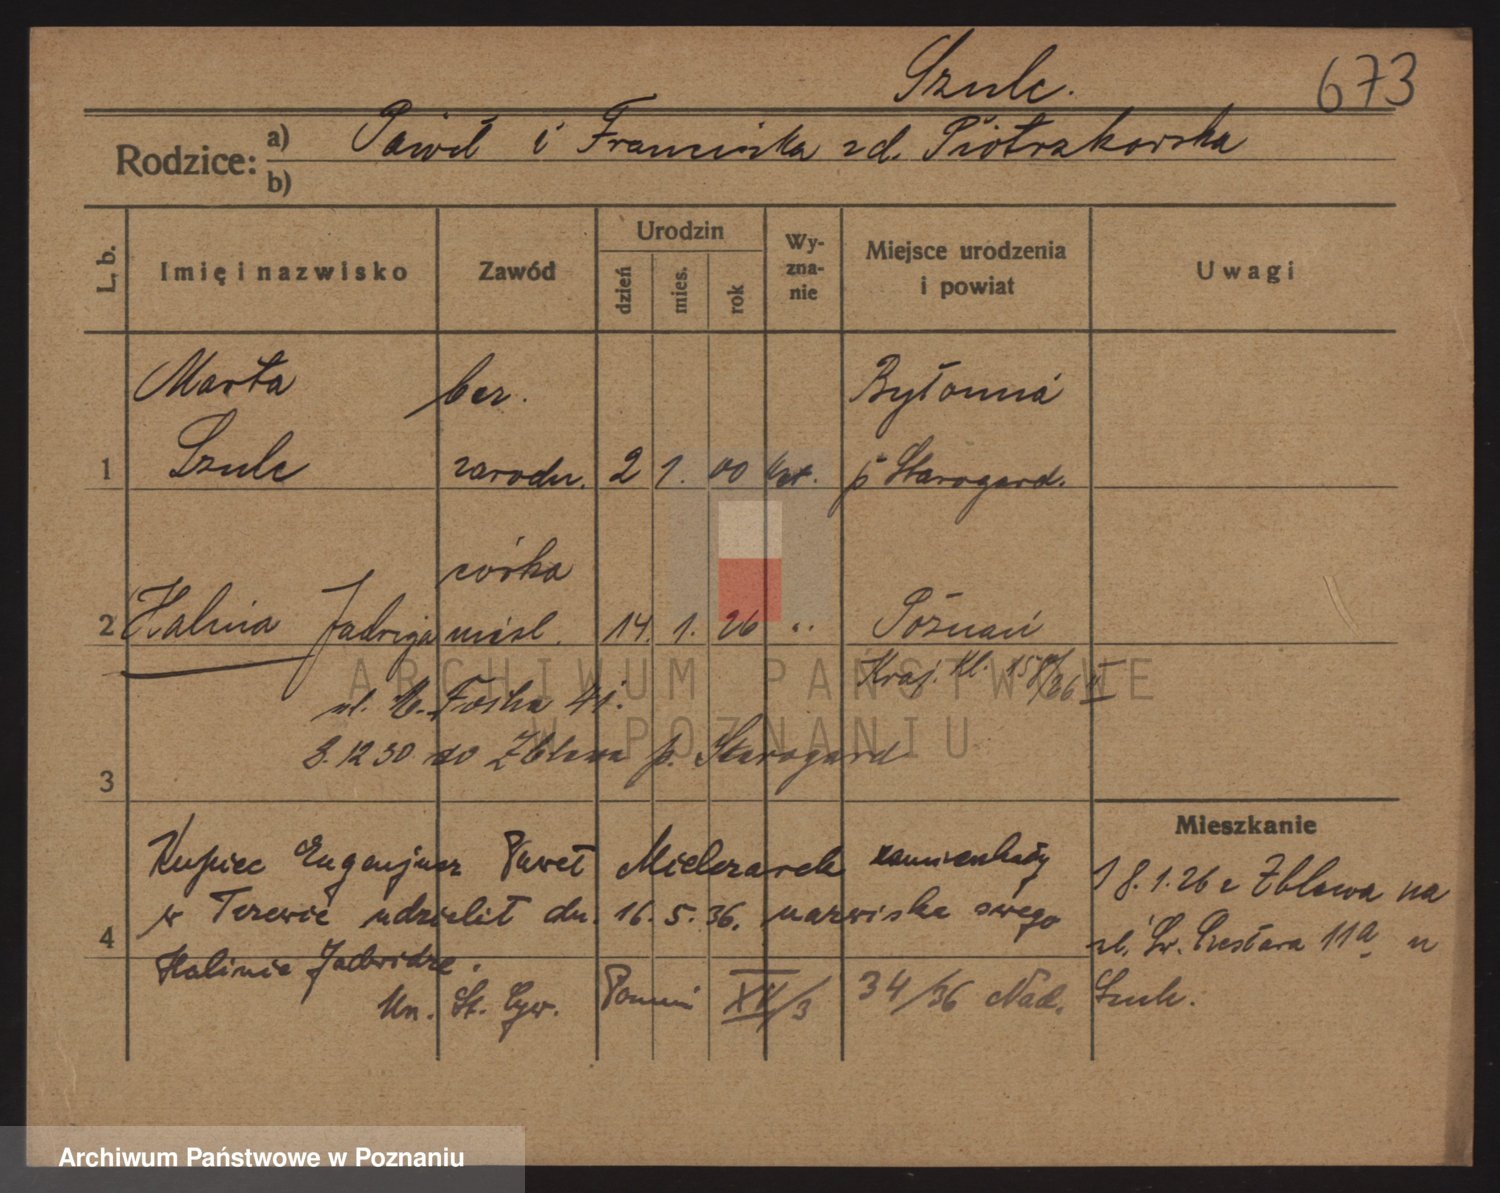 Szulc.
673
Rodzice:
a) Paweł i Franciszka zd. Piotrzkowska
b)
L. b.
Imię i nazwisko
Zawód
Urodzin
dzień
mies.
rok
Wy-
zna-
nie
Miejsce urodzenia
i powiat
Uwagi
Marta bez. Bytonia
1 Szulc zawodu. 2 1. 00 kat. p. Starogard.
córka
2 Halina Jadwiga nieśl. 14. 1. 26 " Poznań
ul. M. Focha
3 8.12 30 do Zblewa p. Starogard
Mieszkanie
Kupiec Eugenjusz Paweł Mielczarek zamieszkały
w udzielił dn. 16. 5. 36. nazwiska swego
4 Halinie Jadwidze.
Urz. St. Cyw. Poznań 34/36 Nad.
18.1.26 z Zblewa na
ul. Św. Czesława 11a u
Szulc.
ARCHIWUM PAŃSTWOWE
W POZNANIU
Archiwum Państwowe w Poznaniu